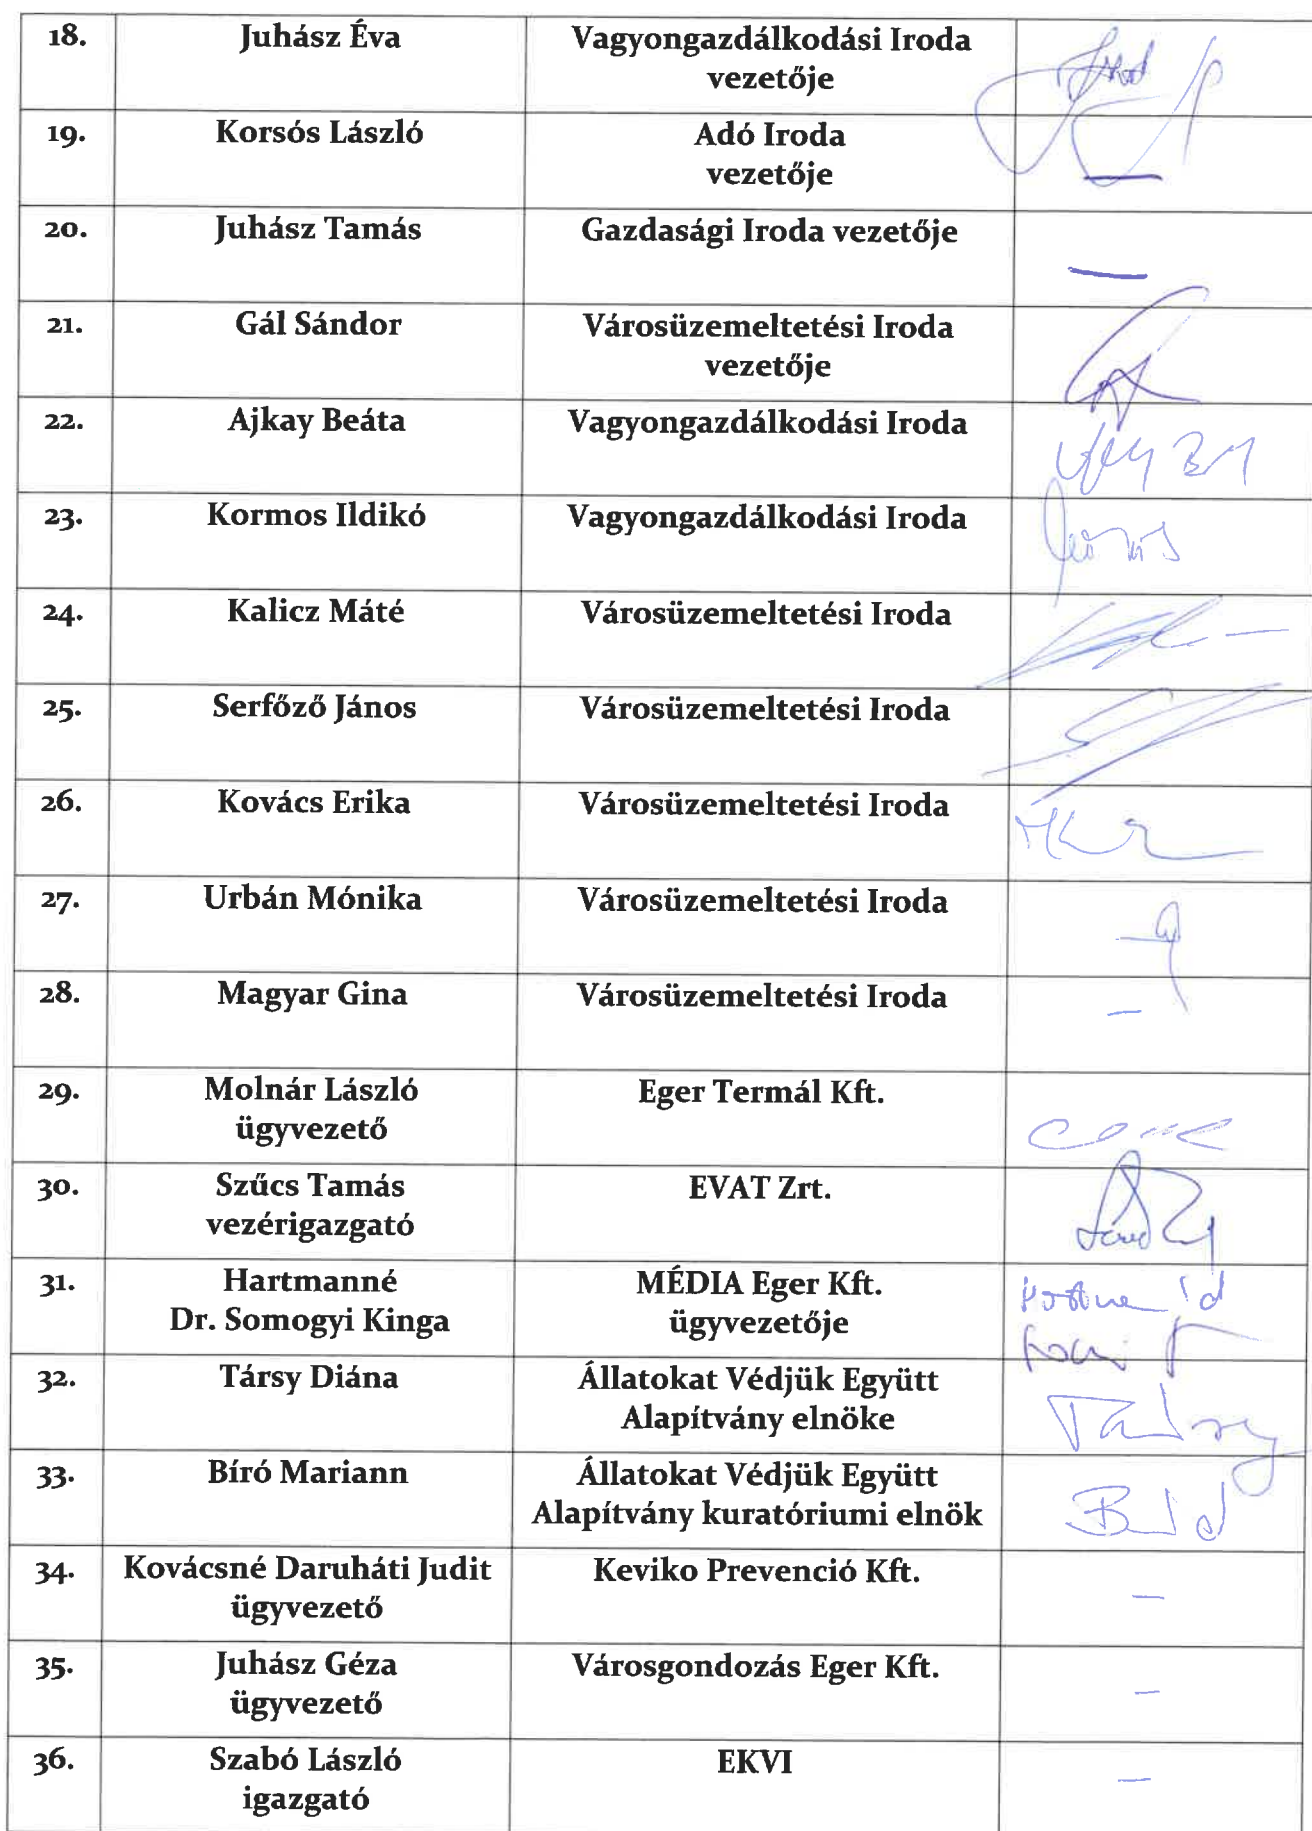 18. Juhász Éva Vagyongazdálkodási Iroda
vezetője
19. Korsós László Adó Iroda
vezetője
20. Juhász Tamás Gazdasági Iroda vezetője
21. Gál Sándor Városüzemeltetési Iroda
vezetője
22. Ajkay Beáta Vagyongazdálkodási Iroda
23. Kormos Ildikó Vagyongazdálkodási Iroda
24. Kalicz Máté Városüzemeltetési Iroda
25. Serfőző János Városüzemeltetési Iroda
26. Kovács Erika Városüzemeltetési Iroda
27. Urbán Mónika Városüzemeltetési Iroda
28. Magyar Gina Városüzemeltetési Iroda
29. Molnár László Eger Termál Kft.
ügyvezető
30. Szűcs Tamás EVAT Zrt.
vezérigazgató
31. Hartmanné MÉDIA Eger Kft.
Dr. Somogyi Kinga ügyvezetője
32. Társy Diána Állatokat Védjük Együtt
Alapítvány elnöke
33. Bíró Mariann Állatokat Védjük Együtt
Alapítvány kuratóriumi elnök
34. Kovácsné Daruháti Judit Keviko Prevenció Kft.
ügyvezető
35. Juhász Géza Városgondozás Eger Kft.
ügyvezető
36. Szabó László EKVI
igazgató